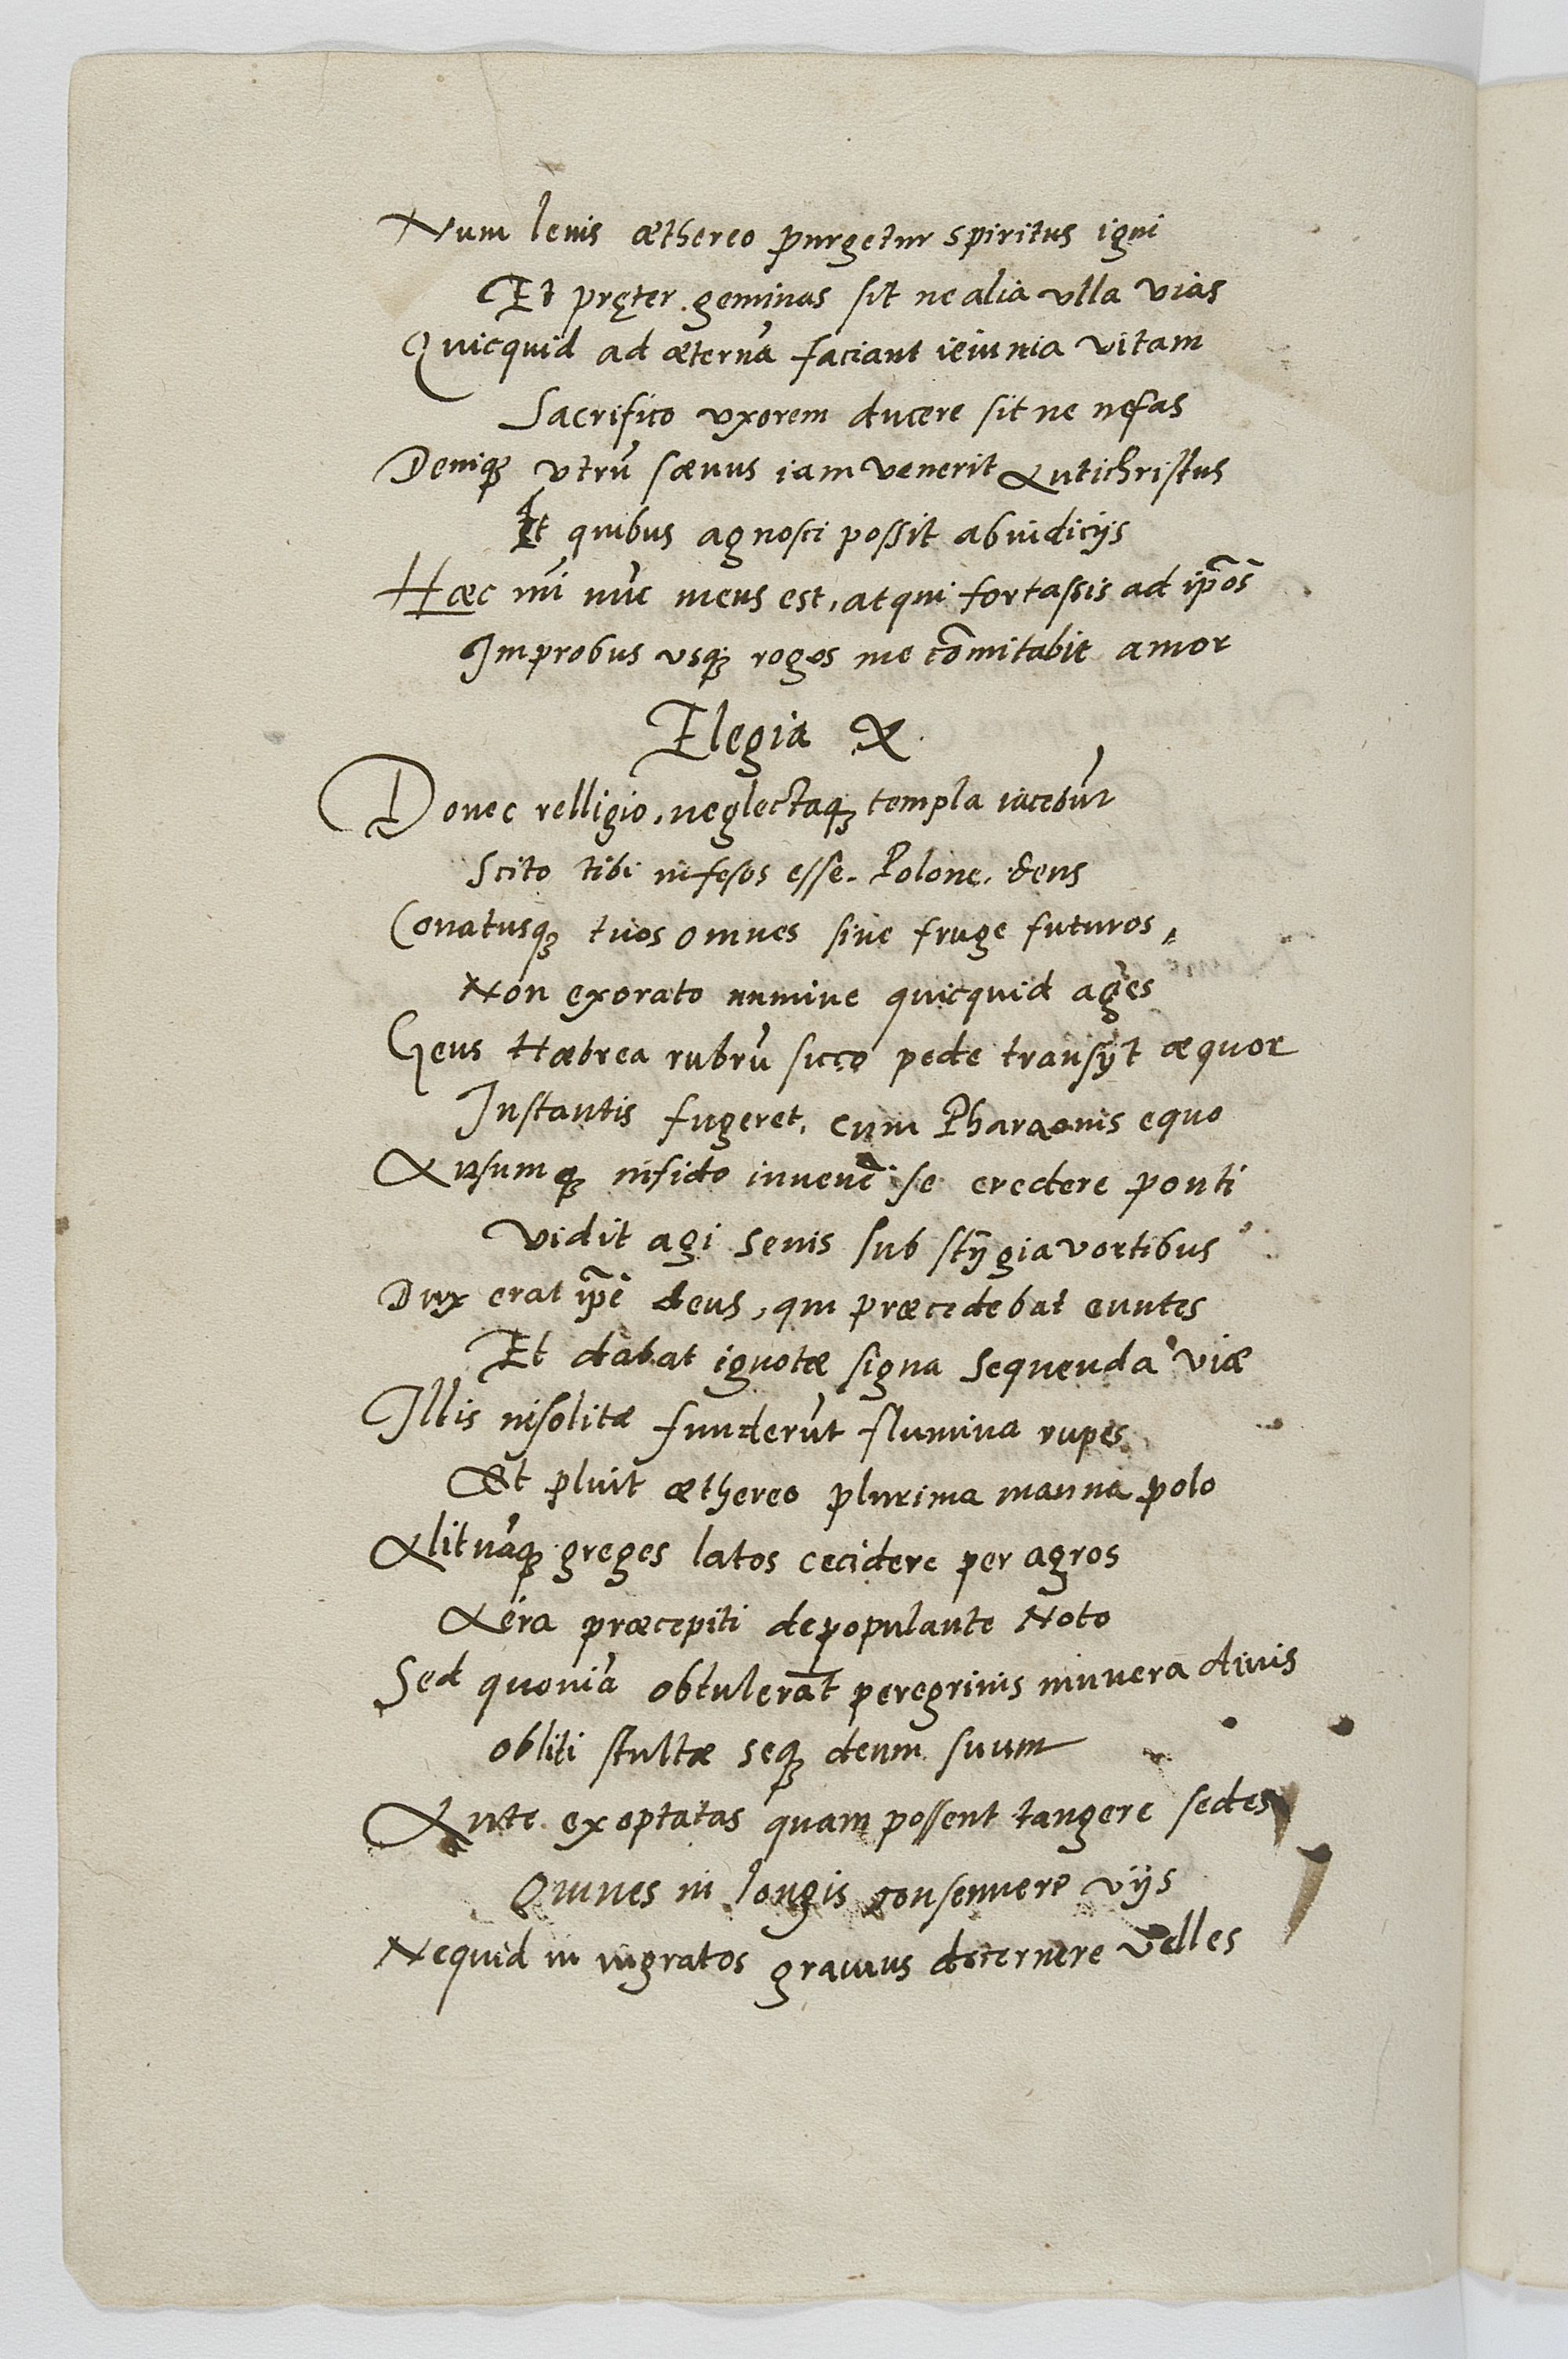 Num leuis æthereo purgetur spiritus igni
Et pręter geminas sit ne alia vlla vias
Quicquid ad æternā faciant ieiunia vitam
Sacrifico vxorem ducere sit ne nefas
Deniqꝫ vtrū sæuus iam venerit Antichristus
Et quibus agnosci possit ab indicijs
Hæc mi nūc mens est, atqui fortassis ad ip̄os
Improbus vsqꝫ rogos me com̄itabit amor
Elegia X
Donec relligio, neglectaqꝫ templa iacebūt
Scito tibi infesos esse. Polone. deus
Conatusqꝫ tuos omnes sine fruge futuros,
Non exorato numine quicquid ages
Gens Hæbrea rubrū sicco pede transijt æquor
Instantis fugeret, cum Pharaonis equos
Ausumqꝫ infido iuvenē se credere ponti
Vidit agi senis sub stygia vortibus
Dux erat ip̄e deus, qui præcedebat euntes
Et dabat ignotæ signa sequenda viæ
Illis insolitæ funderūt flumina rupes
Et pluit æthereo plurima manna polo
Alituūqꝫ greges latos cecidere per agros
Aëra præcepiti depopulante Noto
Sed quoniā obtulerāt peregrinis munera diuis
obliti stultæ seqꝫ deum suum
Ante exoptatas quam possent tangere sedes
Omnes in longis consenuere vijs
Nequid in ingratos grauius decernere velles